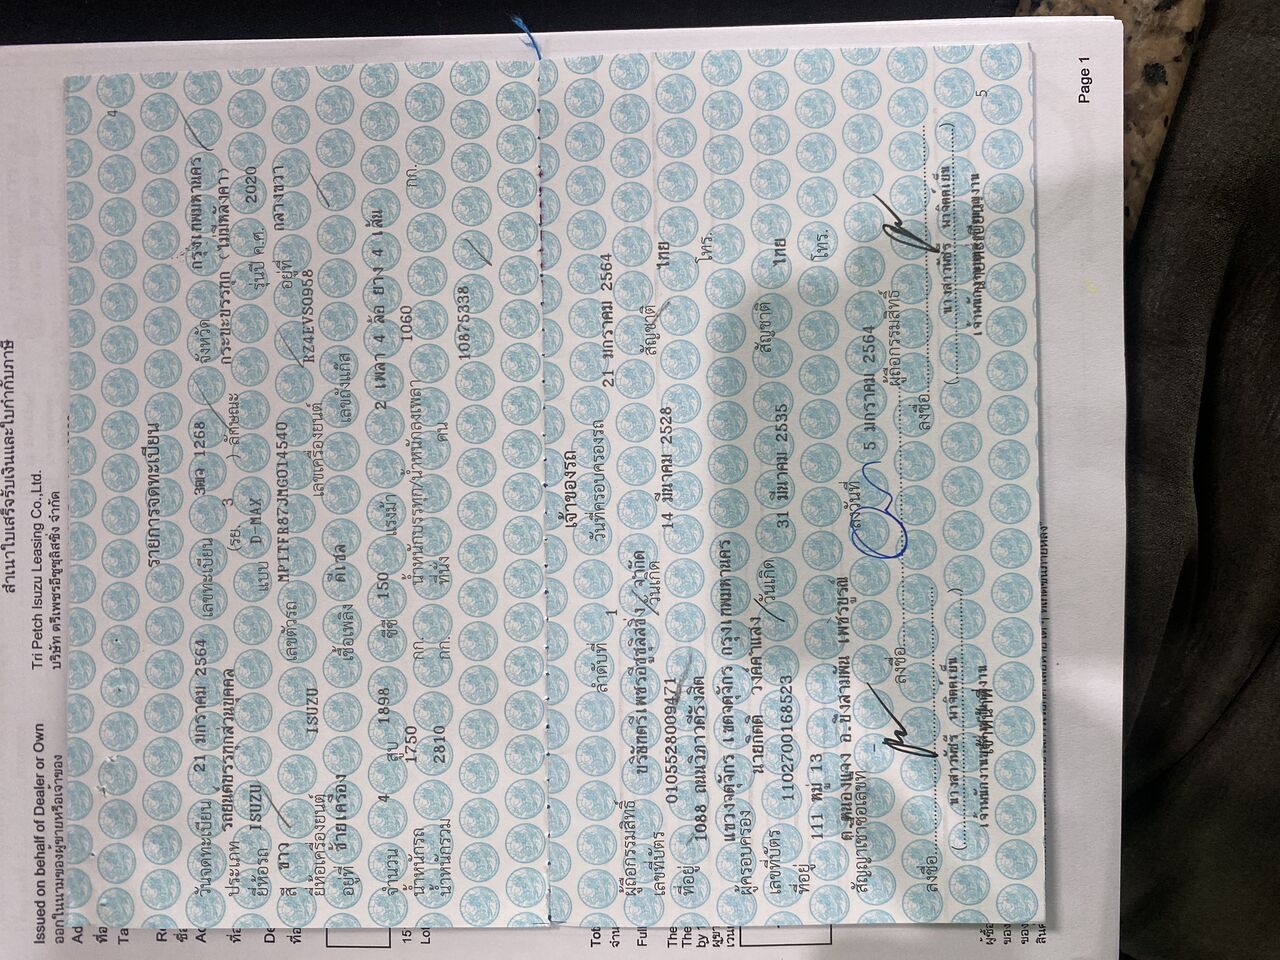 สำเนาใบเสร็จรับเงินและใบกำกับภาษี
Issued on behalf of Dealer or Own
Tri Petch Isuzu Leasing Co.,Ltd.
ออกในนามของผู้ขายหรือเจ้าของ
บริษัท ตรีเพชรอีซูซุลิสซิ่ง จำกัด
4
รายการจดทะเบียน
วันจดทะเบียน 21 มกราคม 2564 เลขทะเบียน 3ฒฉ 1268 จังหวัด กรุงเทพมหานคร
ประเภท รถยนต์บรรทุกส่วนบุคคล (รย. 3 ) ลักษณะ กระบะบรรทุก (ไม่มีหลังคา)
ยี่ห้อรถ ISUZU แบบ D-MAX รุ่นปี ค.ศ. 2020
สี ขาว เลขตัวรถ MP1TFR87JMG014540 อยู่ที่ กลางขวา
ยี่ห้อเครื่องยนต์ ISUZU เลขเครื่องยนต์ RZ4EVS0958
อยู่ที่ ซ้ายเครื่อง เชื้อเพลิง ดีเซล เลขถังแก๊ส
จำนวน 4 สูบ 1898 ซีซี 150 แรงม้า 2 เพลา 4 ล้อ ยาง 4 เส้น
น้ำหนักรถ 1750 กก. น้ำหนักบรรทุก/น้ำหนักลงเพลา 1060 กก.
น้ำหนักรวม 2810 กก. ที่นั่ง คน
10875338
เจ้าของรถ
ลำดับที่ 1 วันที่ครอบครองรถ 21 มกราคม 2564
ผู้ถือกรรมสิทธิ์ บริษัทตรีเพชรอีซูซุลิสซิ่ง จำกัด
เลขที่บัตร 0105528009471 วันเกิด 14 มีนาคม 2528 สัญชาติ ไทย
ที่อยู่ 1088 ถนนวิภาวดีรังสิต โทร.
แขวงจตุจักร เขตจตุจักร กรุงเทพมหานคร
ผู้ครอบครอง นายกิตติ วงค์คำแลง
เลขที่บัตร 1102700168523 วันเกิด 31 มีนาคม 2535 สัญชาติ ไทย
ที่อยู่ 111 หมู่ 13 โทร.
ต.หนองแจง อ.บึงสามพัน เพชรบูรณ์
สัญญาเช่าซื้อเลขที่ - ลงวันที่ 5 มกราคม 2564
ลงชื่อ ผู้ถือกรรมสิทธิ์
ลงชื่อ ลงชื่อ
เจ้าหน้าที่
5
Page 1